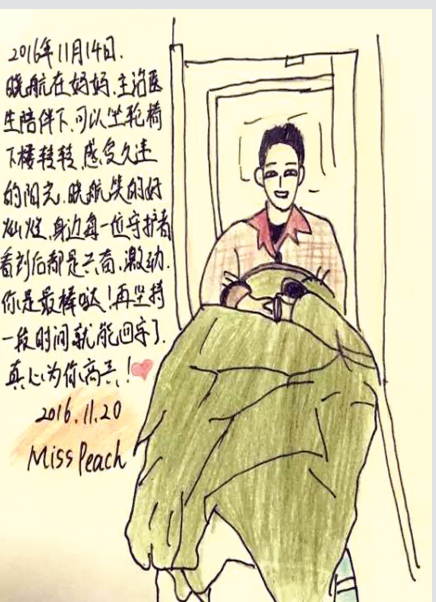 2016年11月14日.
晓航在妈妈、主治医
生陪伴下,可以坐轮椅
下楼转转,感受久违
的阳光,晓航笑的好
灿烂,身边每一位守护者
看到后都是兴奋、激动.
你是最棒哒!再坚持
一段时间就能回家了.
真心为你高兴!
2016.11.20
Miss Peach